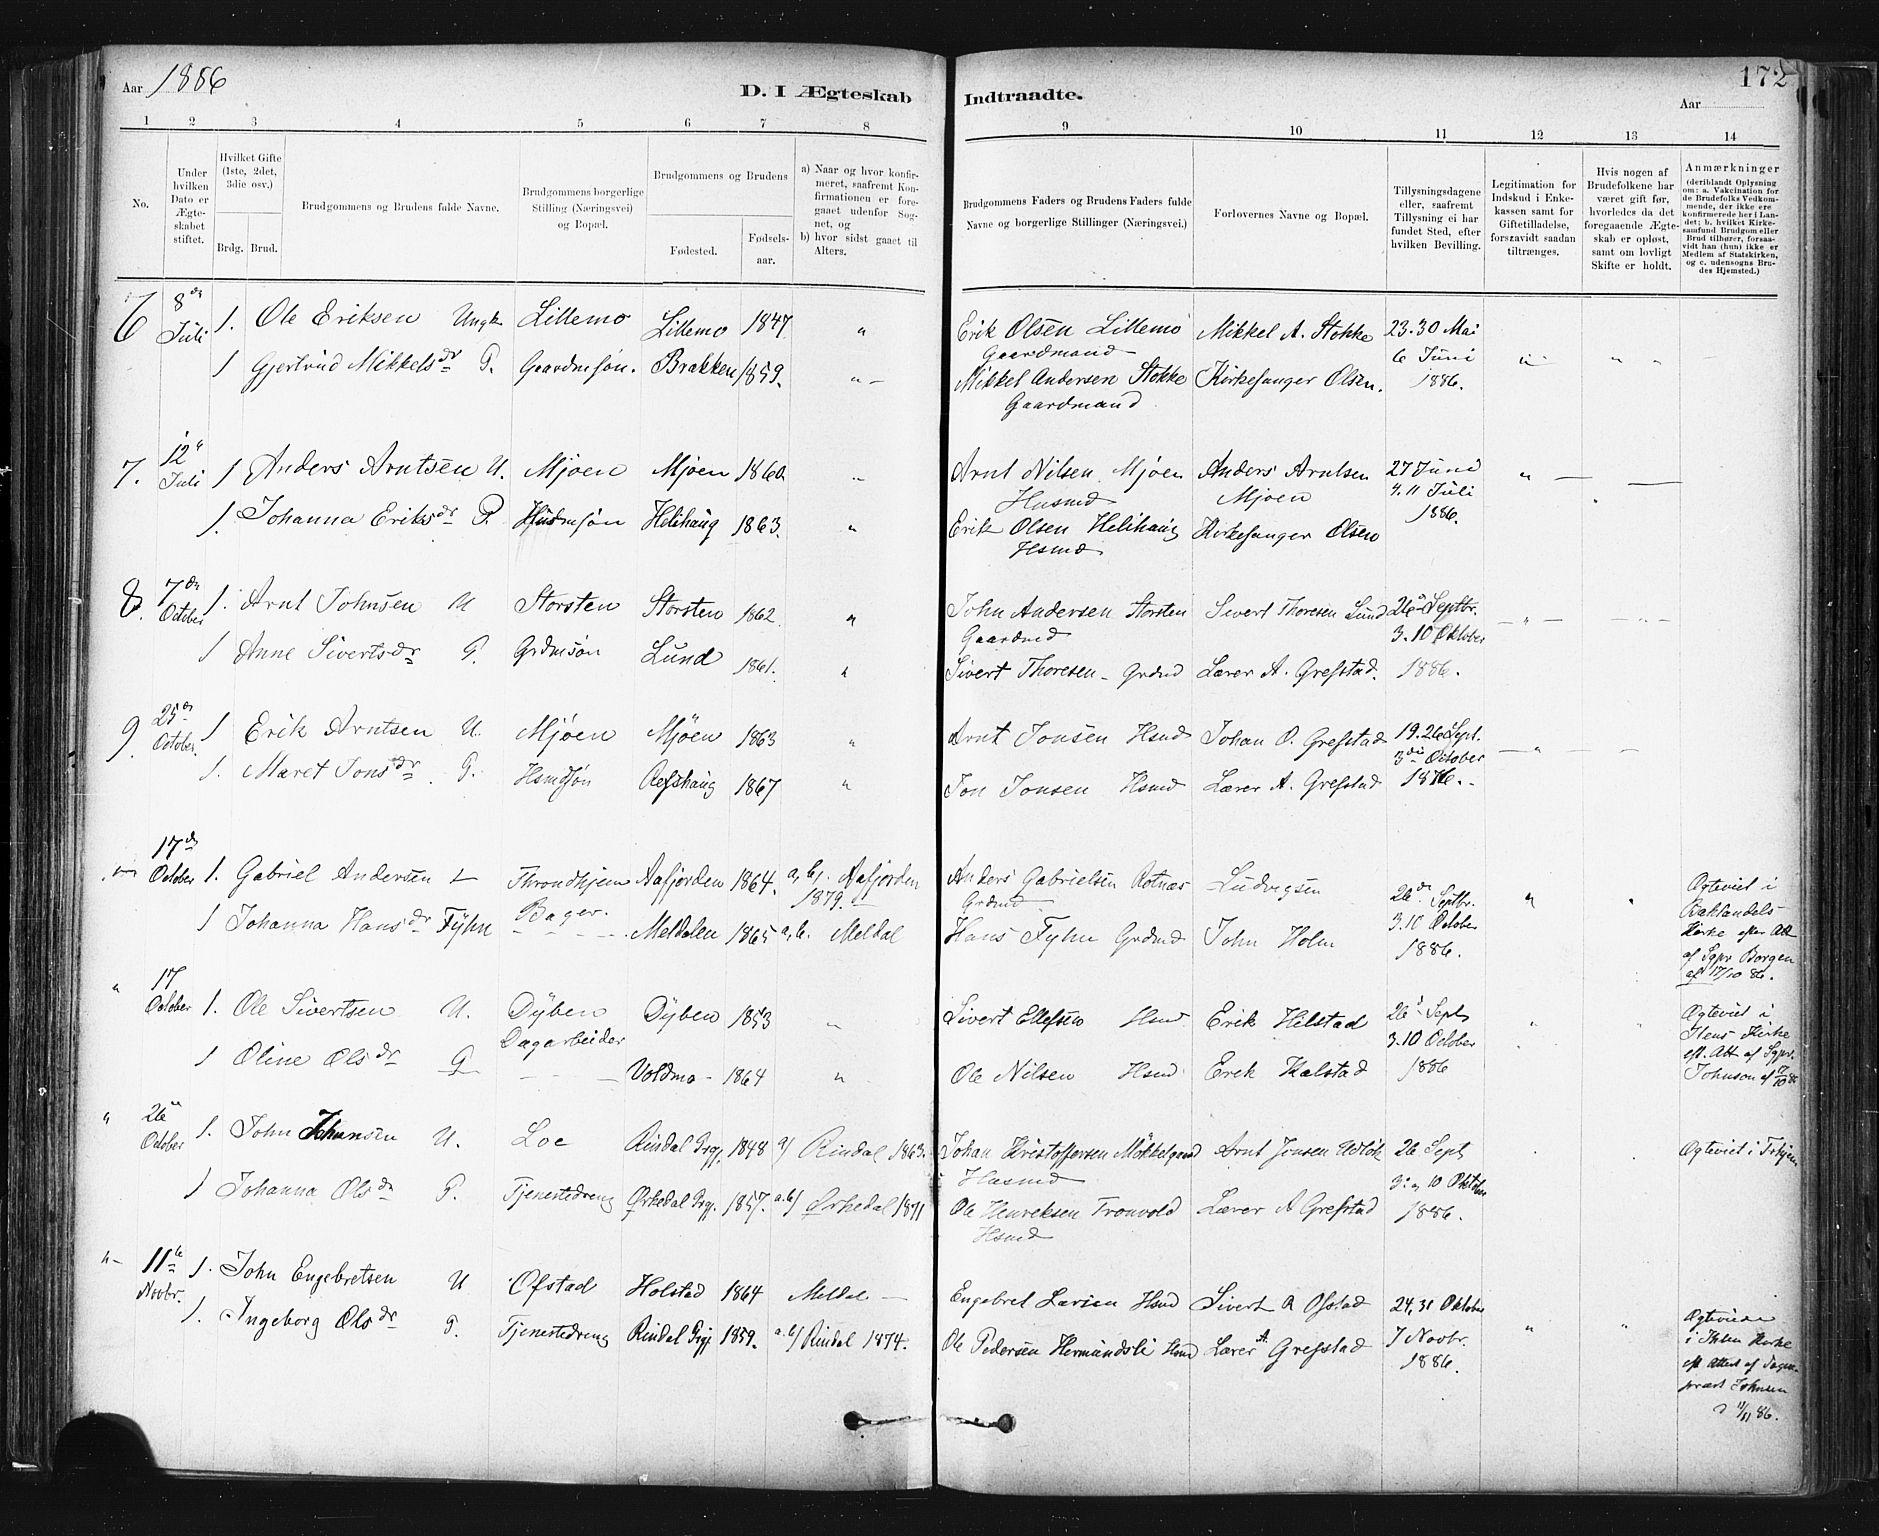 Aar 1886
D. I Ægteskab Indtraadte.
172
Aar
1 2 3 4 5 6 7 8 9 10 11 12 13 14
No.
Under hvilken Dato er Ægteskabet stiftet.
Hvilket Gifte (1ste, 2det, 3die osv.)
Brdg. Brud.
Brudgommens og Brudens fulde Navne.
Brudgommens borgerlige Stilling (Næringsvei) og Bopæl.
Brudgommens og Brudens
Fødested. Fødselsaar.
a) Naar og hvor konfirmeret, saafremt Konfirmationen er foregaaet udenfor Sognet, og
b) hvor sidst gaaet til Alters.
Brudgommens Faders og Brudens Faders fulde Navne og borgerlige Stillinger (Næringsvei.)
Forlovernes Navne og Bopæl.
Tillysningsdagene eller, saafremt Tillysning ei har fundet Sted, efter hvilken Bevilling.
Legitimation for Indskud i Enkekassen samt for Giftetilladelse, forsaavidt saadan tiltrænges.
Hvis nogen af Brudefolkene har været gift før, hvorledes da det foregaaende Ægteskab er opløst, samt om lovligt Skifte er holdt.
Anmærkninger (deriblandt Oplysning om: a. Vakcination for de Brudefolks Vedkommende, der ikke ere konfirmerede her i Landet; b. hvilket Kirkesamfund Brudgom eller Brud tilhører, forsaavidt han (hun) ikke er Medlem af Statskirken, og c. udensogns Brudes Hjemsted.)
6 8de Juli 1. Ole Eriksen Ungk Lillemo Lillemo 1847 " Erik Olsen Lillemo Gaardmand Mikkel A. Stokke 23. 30 Mai 6 Juni 1886.
1 Gjertrud Mikkelsdr P. Gaardmsøn. Brækken 1859. " Mikkel Andersen Stokke Gaardmand Kirkesanger Olsen.
7. 12te Juli 1 Anders Arntsen U. Mjöen Mjöen 1860 " Arnt Nilsen Mjöen Husmd Anders Arntsen Mjoen 27 Juni 4. 11 Juli 1886.
1. Johanna Eriksdr P. Husmsøn Helihaug 1863. " Erik Olsen Helihaug Hsmd Kirkesanger Olsen
8. 7de October 1. Arnt Johnsen U Storsten Storsten 1862 " John Andersen Storsten Gaardmd Sivert Thoresen Lund 26 Septbr. 3. 10 Oktober 1886.
1 Anne Sivertsdr P. Grdmsön Lund 1861. " Sivert Thoresen - Grdmd Lærer A. Grefstad.
9. 25de October. 1 Erik Arntsen U. Mjöen Mjöen 1863 " Arnt Jonsen Hsmd Johan O. Grefstad 19. 26 Sept. 3die October
1. Maret Jonsdr. P. Hsmdsøn Refshaug 1867 " Jon Jonsen Hsmd Lærer A. Grefstad
17de October 1. Gabriel Andersen Throndhjem Bager. Aafjorden 1864. a, b,. Aafjorden 1879. Anders Gabrielsen Grdmd Ludvigsen 26de Septbr. 3. 10 October 1886. Ægteviet i Baklandets Kirke efter Att af Sgpr Borgen af 17/10 86.
1 Johanna Hansdr Fyhn Meldalen 1865 a, b. Meldal Hans Fyhn Grdmd John Holm
" 17 October 1. Ole Sivertsen U. Dyben Dagarbeider Dyben 1853 " Sivert Ellefsen Hsmd Erik Hilstad 26 Sept 3. 10 October 1886 Ægteviet i Hens Kirke eft. Att af Sgpr. Johnson af 17/10 86
1 Oline Olsdr P Voldmo - 1864 " Ole Nilsen Hsmd Erik Kalstad
" 26 October 1. John Johnsen U. Loe Rindal Prgj. 1848 a) Rindal 1863. Johan Kristoffersen Husmd Arnt Jonsen 26 Sept 3. 10 Oktober 1886. Ægteviet i Trhjem
1 Johanna Olsdr P. Tjenestedreng Ørkedal Prgj. 1857. a. b) Ørkedal 1871 Ole Henriksen Hsmd Lærer A Grefstad
11te Novbr. 1. John Engebretsen U Ofstad Holstad 1864 Meldal - Engebret Larsen Hsmd Sivert A Ofstad 24, 31 Oktober 7 Novbr. 1886.
1. Ingeborg Olsdr P. Tjenestedreng Rindal Prgj 1859. a. b) Rindal 1874. Ole Pedersen Hermundsli Hsmd Lærer A. Grefstad Ægteviede i Kirke eft Attest af Sognepræst Johnsen 11/11 86.